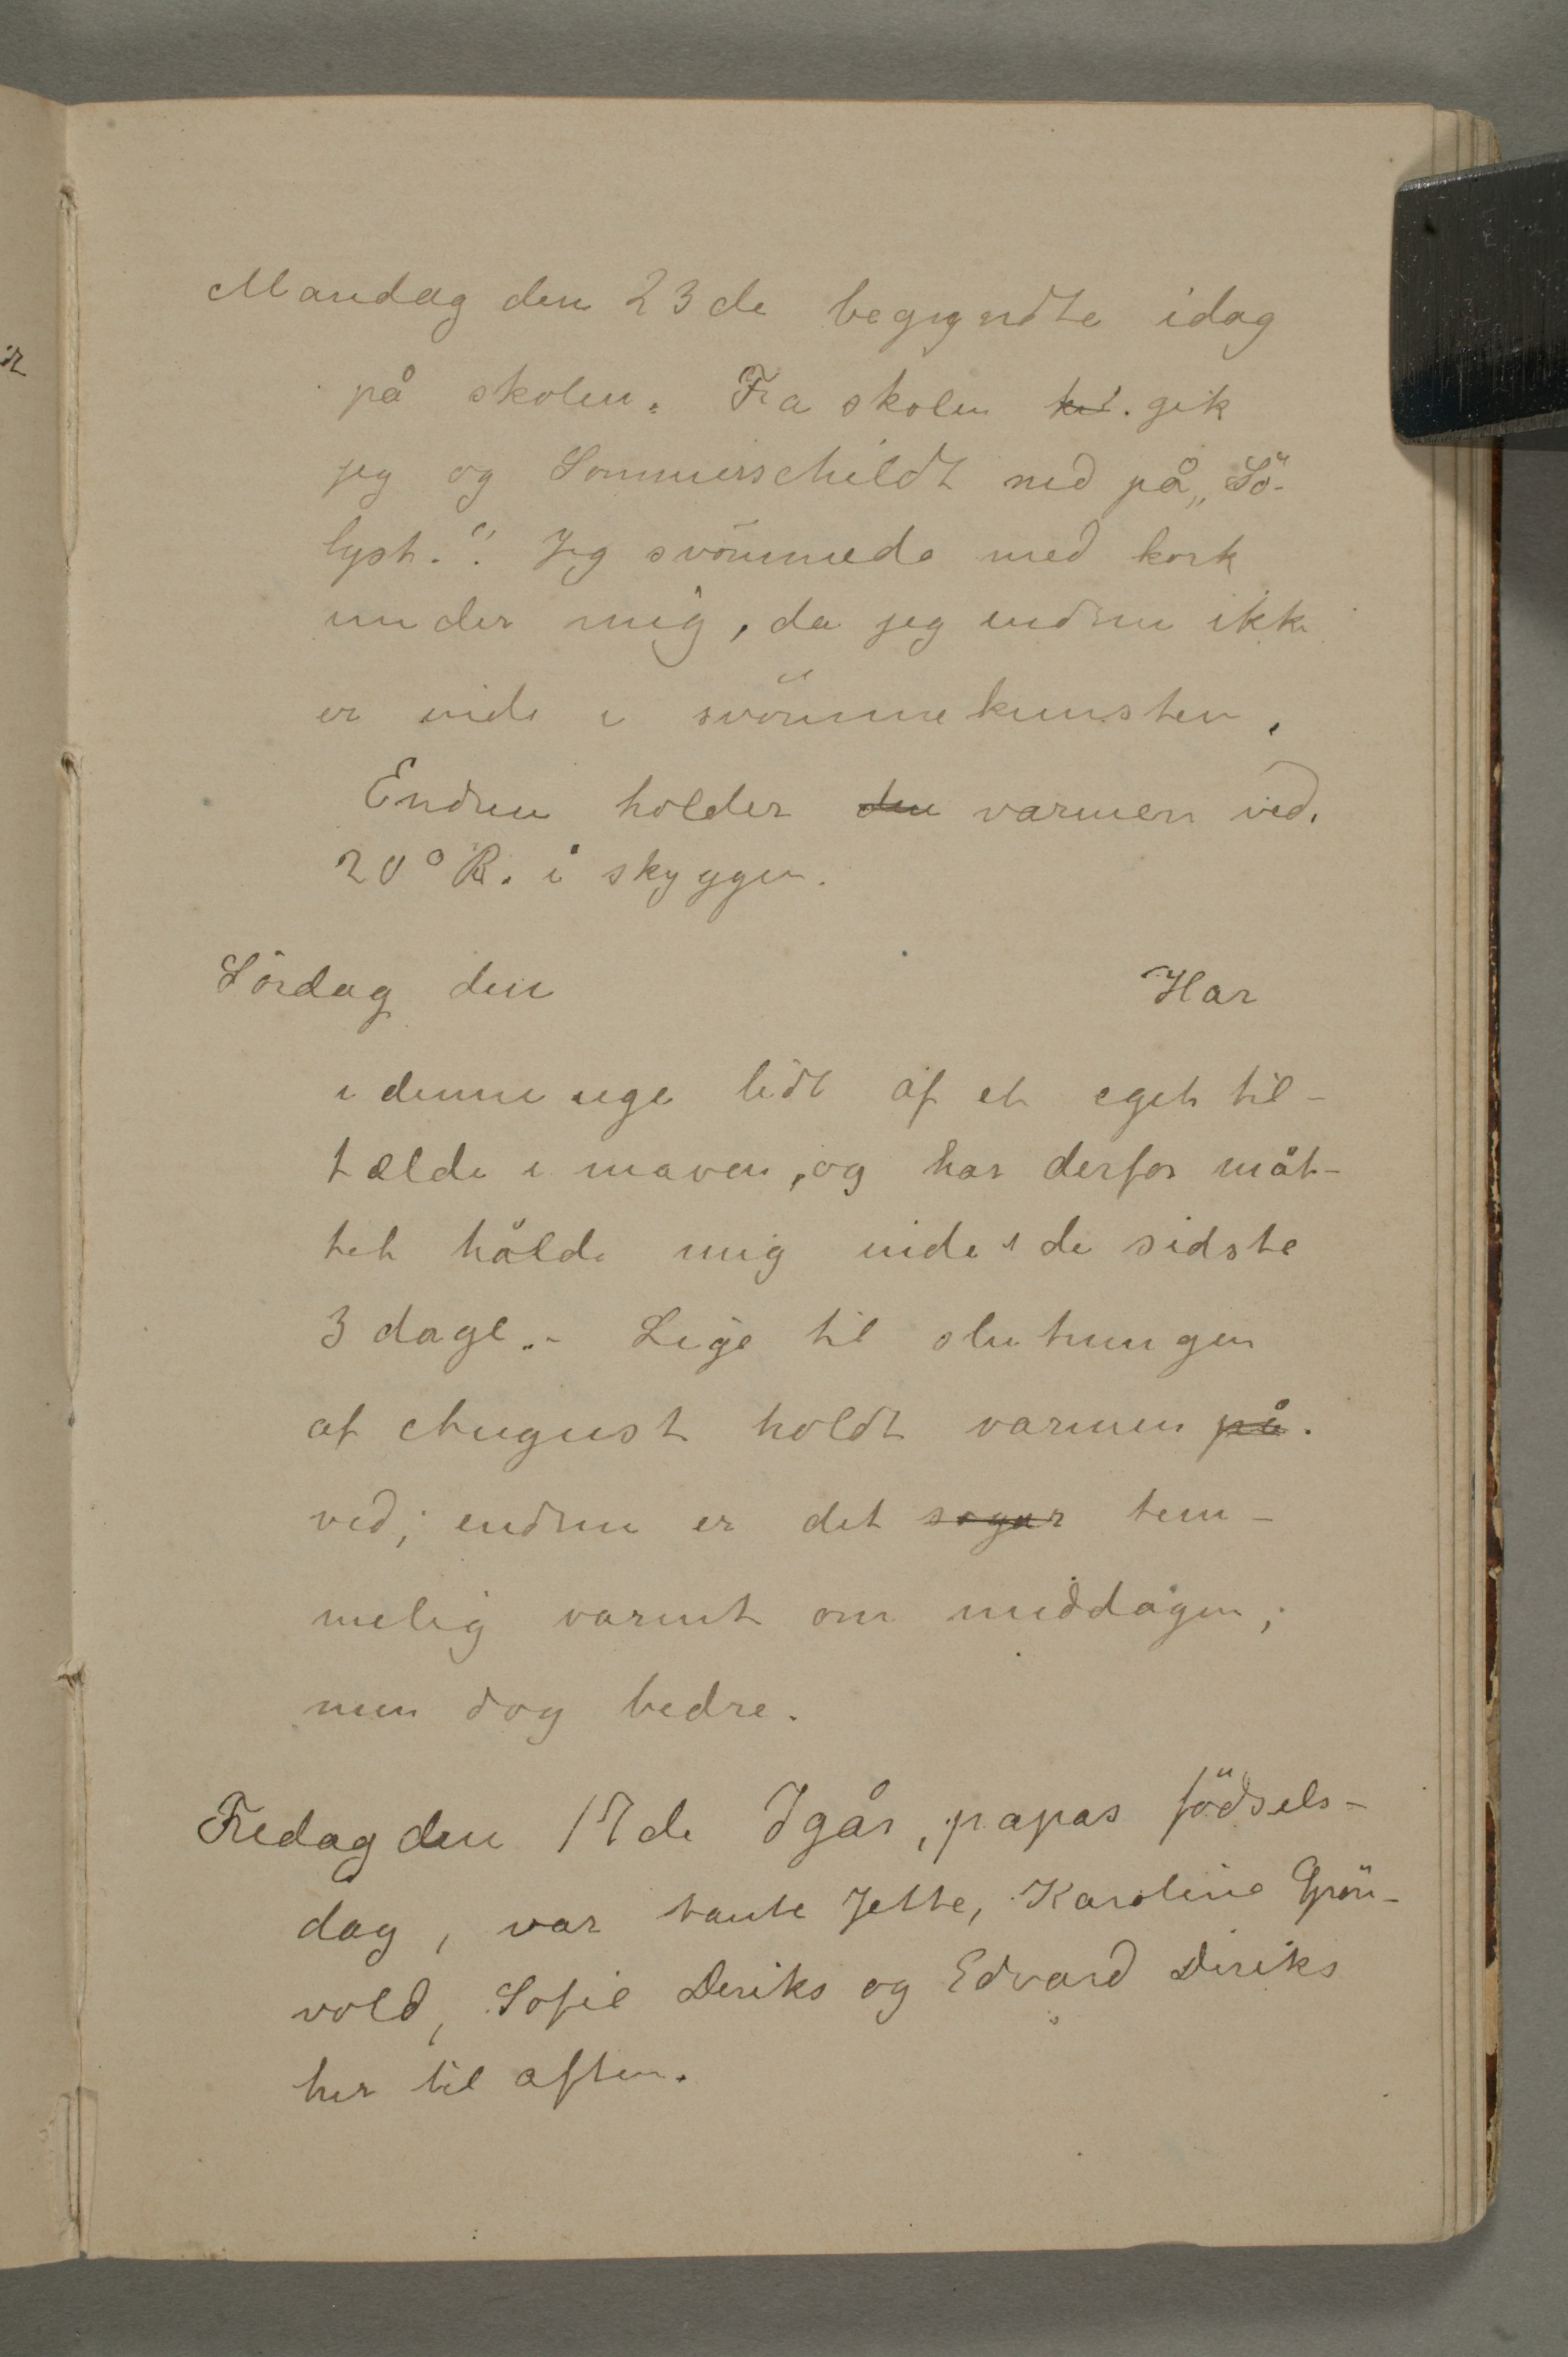 Mandag den 23de begyndte idag
på skolen. Fra skolen gik
jeg og Sommerschildt ned på „Sö-
lyst.“ Jeg svömmede med kork
under mig, da jeg endnu ikke
er inde i svömmekunsten.
Endnu holder den varmen ved.
20° R. i skyggen.
Lördag den Har
i denne uge lidt af et eget til-
tælde i maven, og har derfor måt-
tet hålde mig inde i de sidste
3 dage.- Lige til slutningen
af August holdt varmen på.
ved; endnu er det sogar tem-
melig varmt om middagen;
men dog bedre.
Fredag den 17de Igår, papas födsels-
dag, var tante Jette, Karoline Grön-
vold, Sofie Deriks og Edvard Diriks
her til aften.